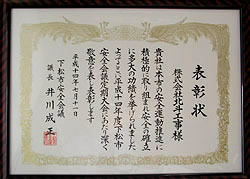 表彰状
株式会社北斗工事様
貴社は本市の安全運動推進に
積極的に取り組まれ安全の確立
に多大の功績を挙げられました
よってここに平成十四年度下松市
安全会議定期大会にあたり深く
敬意を表し表彰します
平成十四年七月十一日
下松市安全会議
議長 井川成正